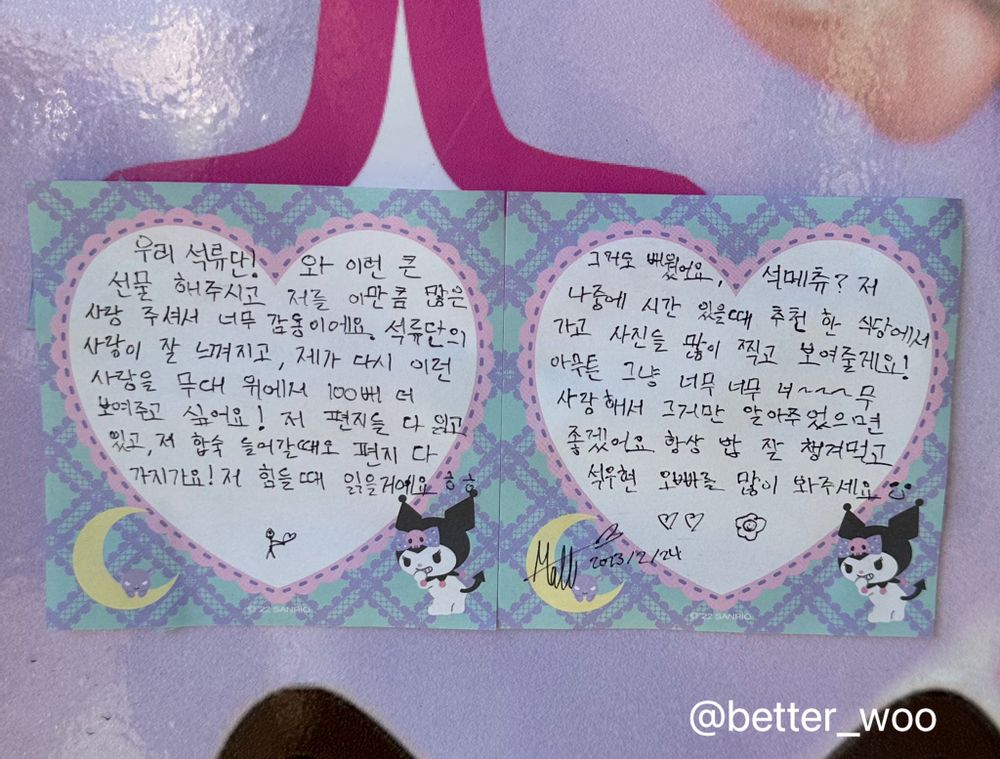 우리 석류단! 와 이런 큰
선물 해주시고 저를 이만큼 많은
사랑 주셔서 너무 감동이에요. 석류단의
사랑이 잘 느껴지고, 제가 다시 이런
사랑을 무대 위에서 100배 더
보여주고 싶어요! 저 편지들 다 읽고
있고, 저 합숙 들어갈때도 편지 다
가지가요! 저 힘들때 읽을거에요 ㅎㅎ
© '22 SANRIO
그거도 배웠어요, 석메츄? 저
나중에 시간 있을때 추천 한 식당에서
가고 사진들 많이 찍고 보여줄게요!
아무튼 그냥 너무 너무 너~~~무
사랑해서 그거만 알아주었으면
좋겠어요 항상 밥 잘 챙겨먹고
석우현 오빠를 많이 봐주세요
Matt 2023/2/24
© '22 SANRIO
@better_woo